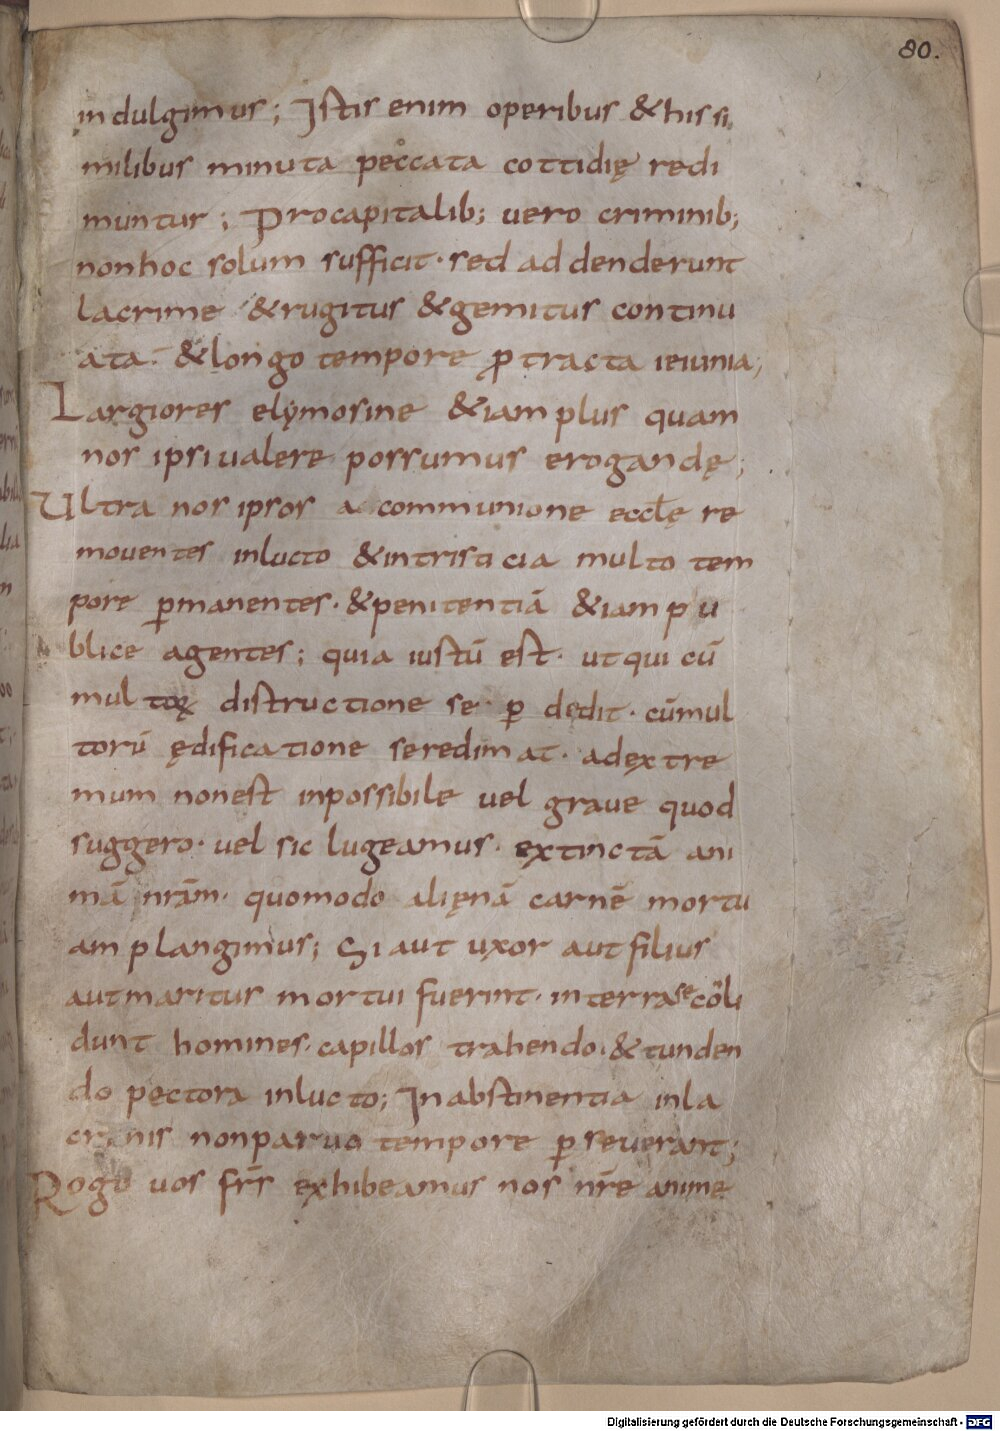 80.
indulgimus; Istis enim operibus & his si
milibus minuta peccata cottidię redi
muntur; Pro capitalib; vero criminib;
non hoc solum sufficit· sed ad denderunt
lacrime & rugitus & gemitus continu
ata· & longo tempore ꝓtracta ieiunia;
Largiores elymosine & iam plus quam
nos ipsi ualere possumus erogandę;
Ultra nos ipsos a communione eccłę re
mouentes in lucto & in tristicia multo tem
pore ꝑmanentes· & penitentiā & iam pu
blice agentes; quia iustū est· ut qui cū
multoꝝ distructione se ꝑdedit· cūmul
torū ędificatione se redimat· ad extre
mum non est inpossibile vel graue quod
suggero· vel sic lugeamus· extinctā ani
mā nrām· quomodo alięnā carnē mortu
am plangimus; Si aut uxor aut filius
aut maritus mortui fuerint· in terra se cōli
dunt homines· capillos trahendo· & tunden
do pectora in lucto; In abstinentia in la
crimis non paruo tempore ꝑseuerant;
Rogo uos frs̄ exhibeamus nos nrē animę
Digitalisierung gefördert durch die Deutsche Forschungsgemeinschaft - DFG